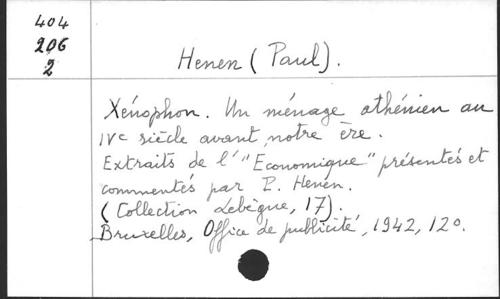 404
206
2
Henen (Paul).
Xénophon. Un ménage athénien au
IVe siècle avant notre ère.
Extraits de l'"Economique" présentés et
commentés par P. Henen.
(Collection Lebègue, 17).
Bruxelles, Office de publicité, 1942, 12o.